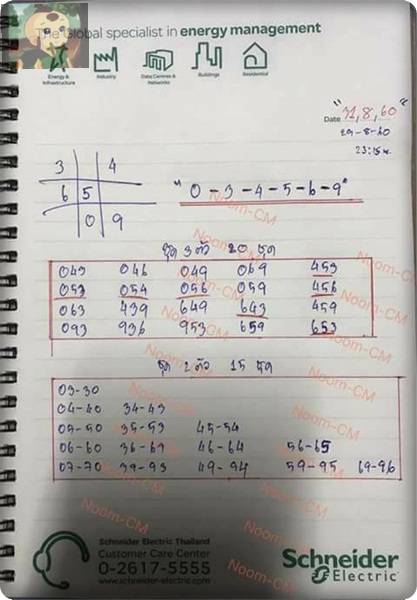 The Global specialist in energy management
Energy & Infrastructure
Industry
Data Centres & Networks
Buildings
Residential
Date "31,8,60"
29-8-60
23:15น.
3 4
6 5
0 9
"0-3-4-5-6-9"
ชุด 3 ตัว 20 ชุด
043 046 049 069 453
053 054 056 059 456
063 439 649 643 459
093 936 953 659 653
ชุด 2 ตัว 15 ชุด
03-30
04-40 34-43
05-50 35-53 45-54
06-60 36-63 46-64 56-65
07-70 39-93 49-94 59-95 69-96
Noom-CM
Schneider Electric Thailand
Customer Care Center
0-2617-5555
www.schneider-electric.com
Schneider
Electric